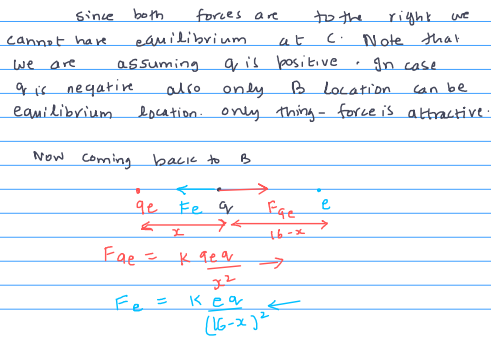 since both forces are to the right we
cannot have equilibrium at C. Note that
we are assuming q is positive. In case
q is negative also only B location can be
equilibrium location. only thing - force is attractive.
Now coming back to B
9e Fe q F9e e
x 16-x
F9e = K 9e q / x² →
Fe = K e q / (16-x)² ←